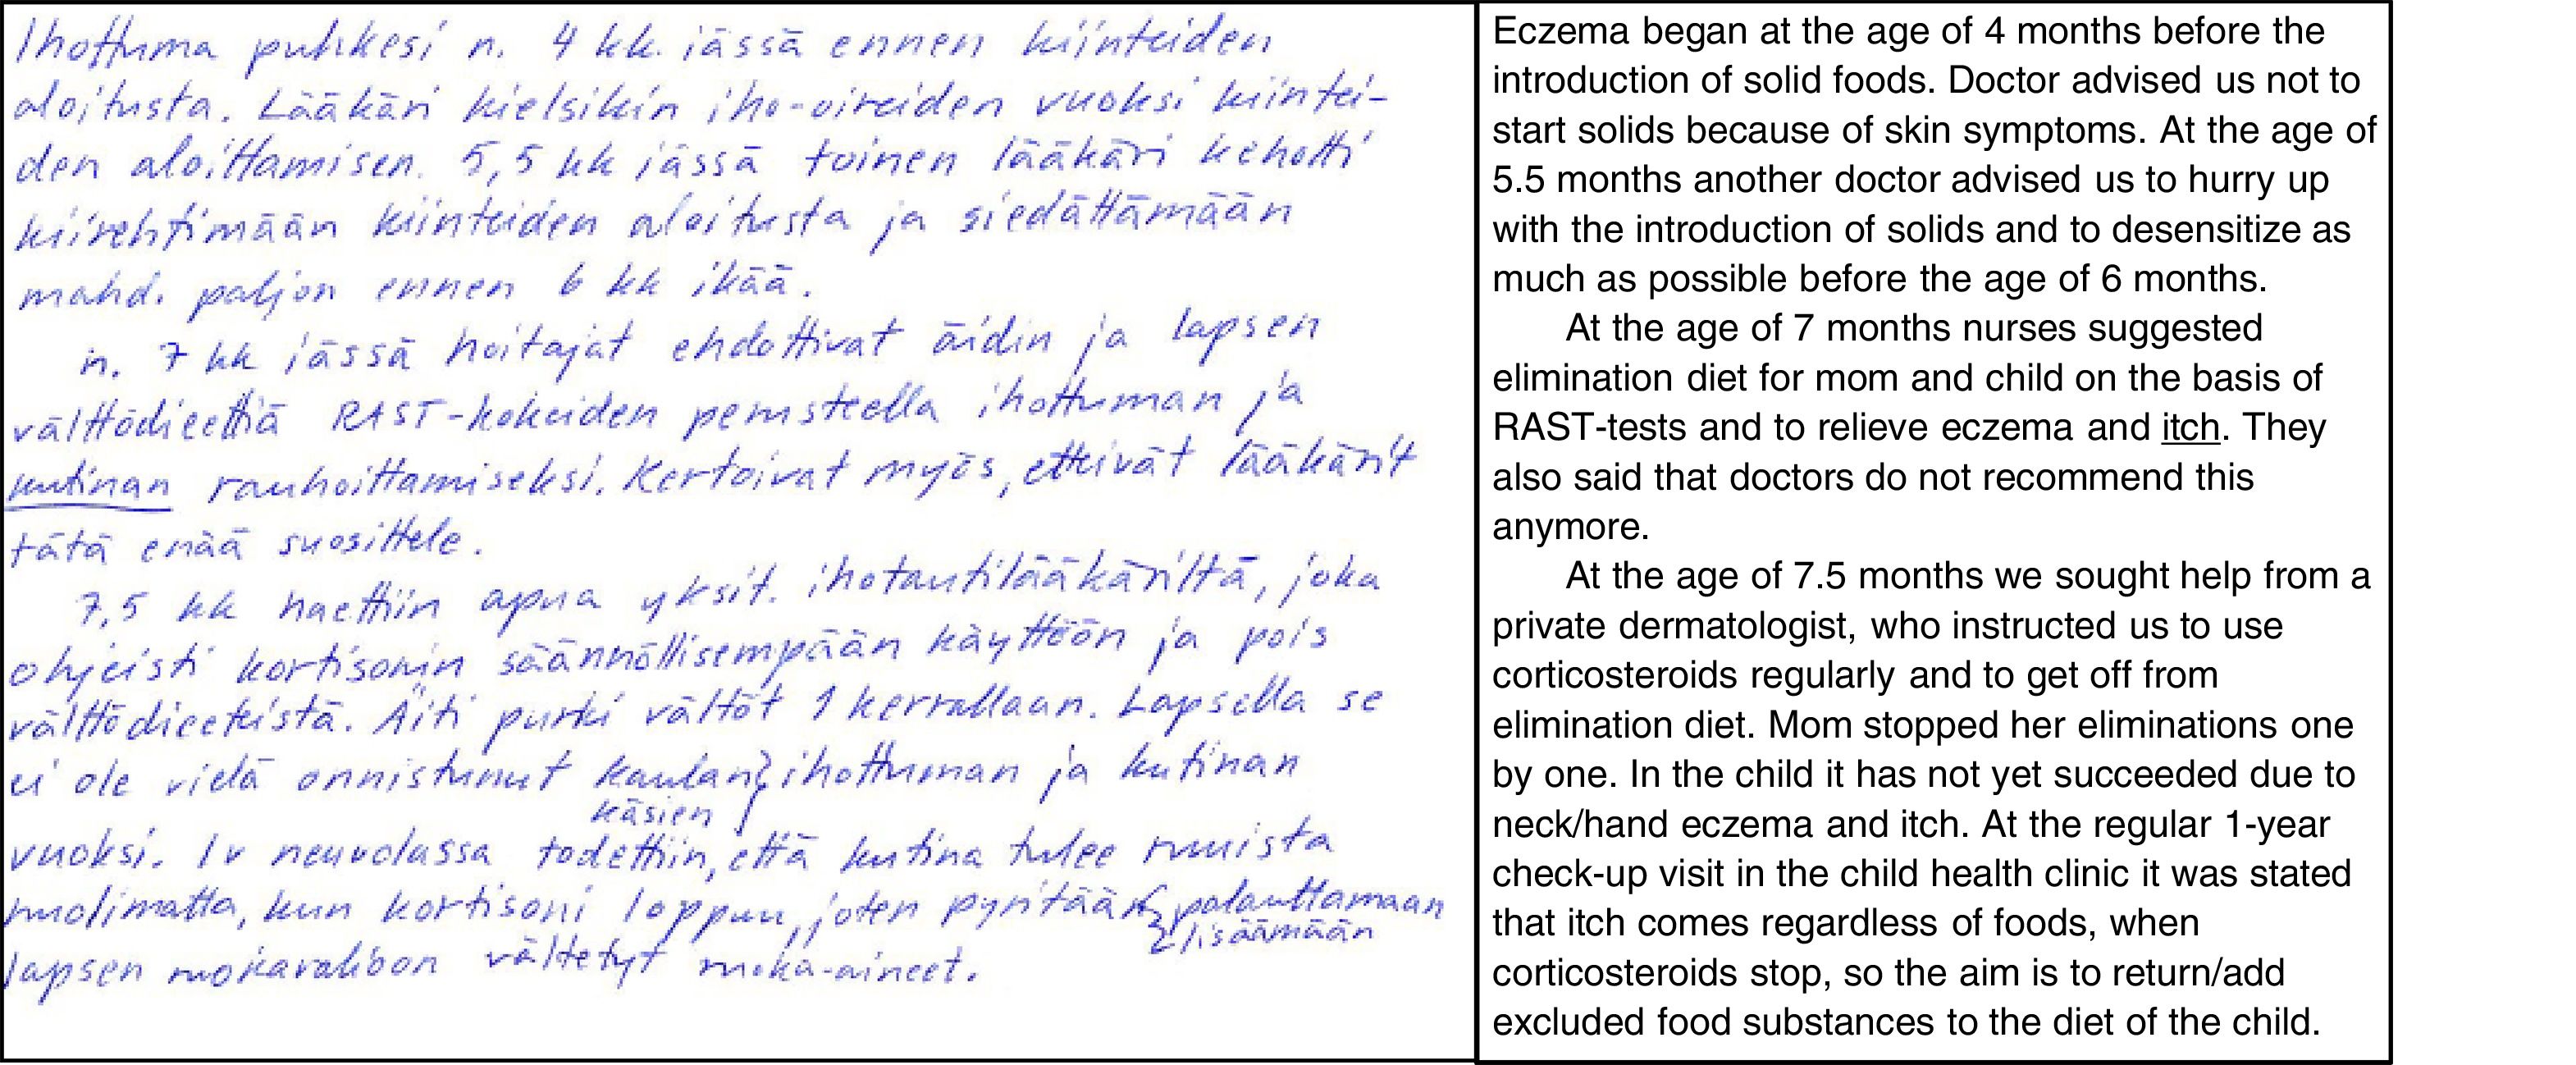 Ihottuma puhkesi n. 4 kk. iässä ennen kiinteiden
aloitusta. Lääkäri kielsikin iho-oireiden vuoksi kiintei-
den aloittamisen. 5,5 kk iässä toinen lääkäri kehotti
kiirehtimään kiinteiden aloitusta ja siedättämään
mahd. paljon ennen 6 kk ikää.
n. 7 kk iässä hoitajat ehdottivat äidin ja lapsen
välttödieettiä RAST-kokeiden perusteella ihottuman ja
kutinan rauhoittamiseksi. Kertoivat myös, etteivät lääkärit
tätä enää suosittele.
7,5 kk haettiin apua yksit. ihotautilääkäriltä, joka
ohjeisti kortisonin säännöllisempään käyttöön ja pois
välttödieeteistä. Äiti purki vältöt 1 kerrallaan. Lapsella se
ei ole vielä onnistunut kaulan} ihottuman ja kutinan
käsien }
vuoksi. 1v neuvolassa todettiin, että kutina tulee ruuista
huolimatta, kun kortisoni loppuu, joten pyritään { palauttamaan
{ lisäämään
lapsen ruokavalioon vältetyt ruoka-aineet.
Eczema began at the age of 4 months before the
introduction of solid foods. Doctor advised us not to
start solids because of skin symptoms. At the age of
5.5 months another doctor advised us to hurry up
with the introduction of solids and to desensitize as
much as possible before the age of 6 months.
At the age of 7 months nurses suggested
elimination diet for mom and child on the basis of
RAST-tests and to relieve eczema and itch. They
also said that doctors do not recommend this
anymore.
At the age of 7.5 months we sought help from a
private dermatologist, who instructed us to use
corticosteroids regularly and to get off from
elimination diet. Mom stopped her eliminations one
by one. In the child it has not yet succeeded due to
neck/hand eczema and itch. At the regular 1-year
check-up visit in the child health clinic it was stated
that itch comes regardless of foods, when
corticosteroids stop, so the aim is to return/add
excluded food substances to the diet of the child.